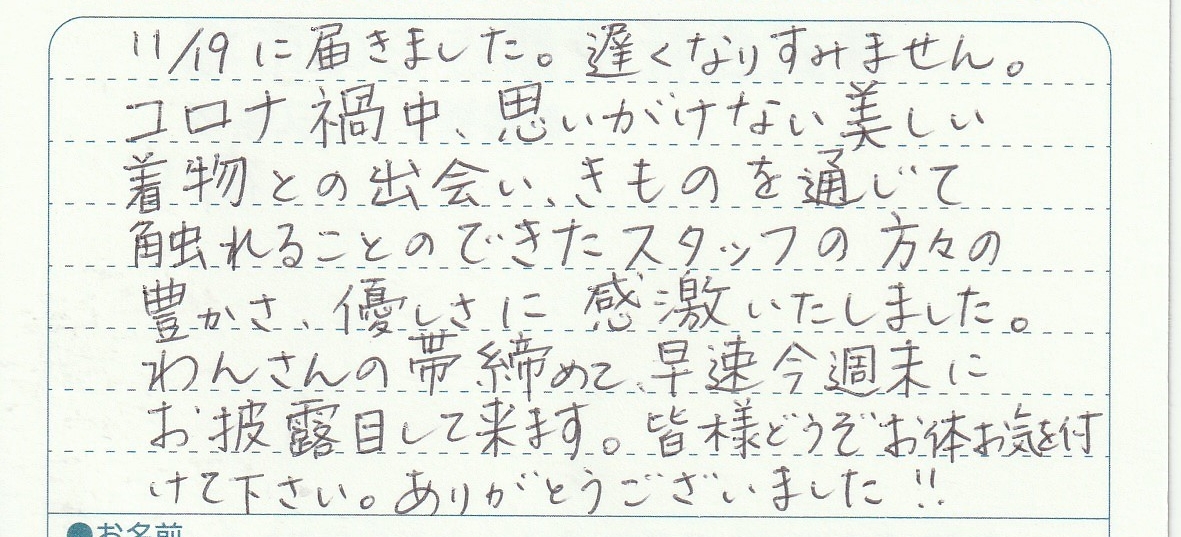 11/19に届きました。遅くなりすみません。
コロナ禍中、思いがけない美しい
着物との出会い、きものを通じて
触れることのできたスタッフの方々の
豊かさ、優しさに感激いたしました。
わんさんの帯締めて、早速今週末に
お披露目して来ます。皆様どうぞお体お気を付
けて下さい。ありがとうございました!!
●お名前